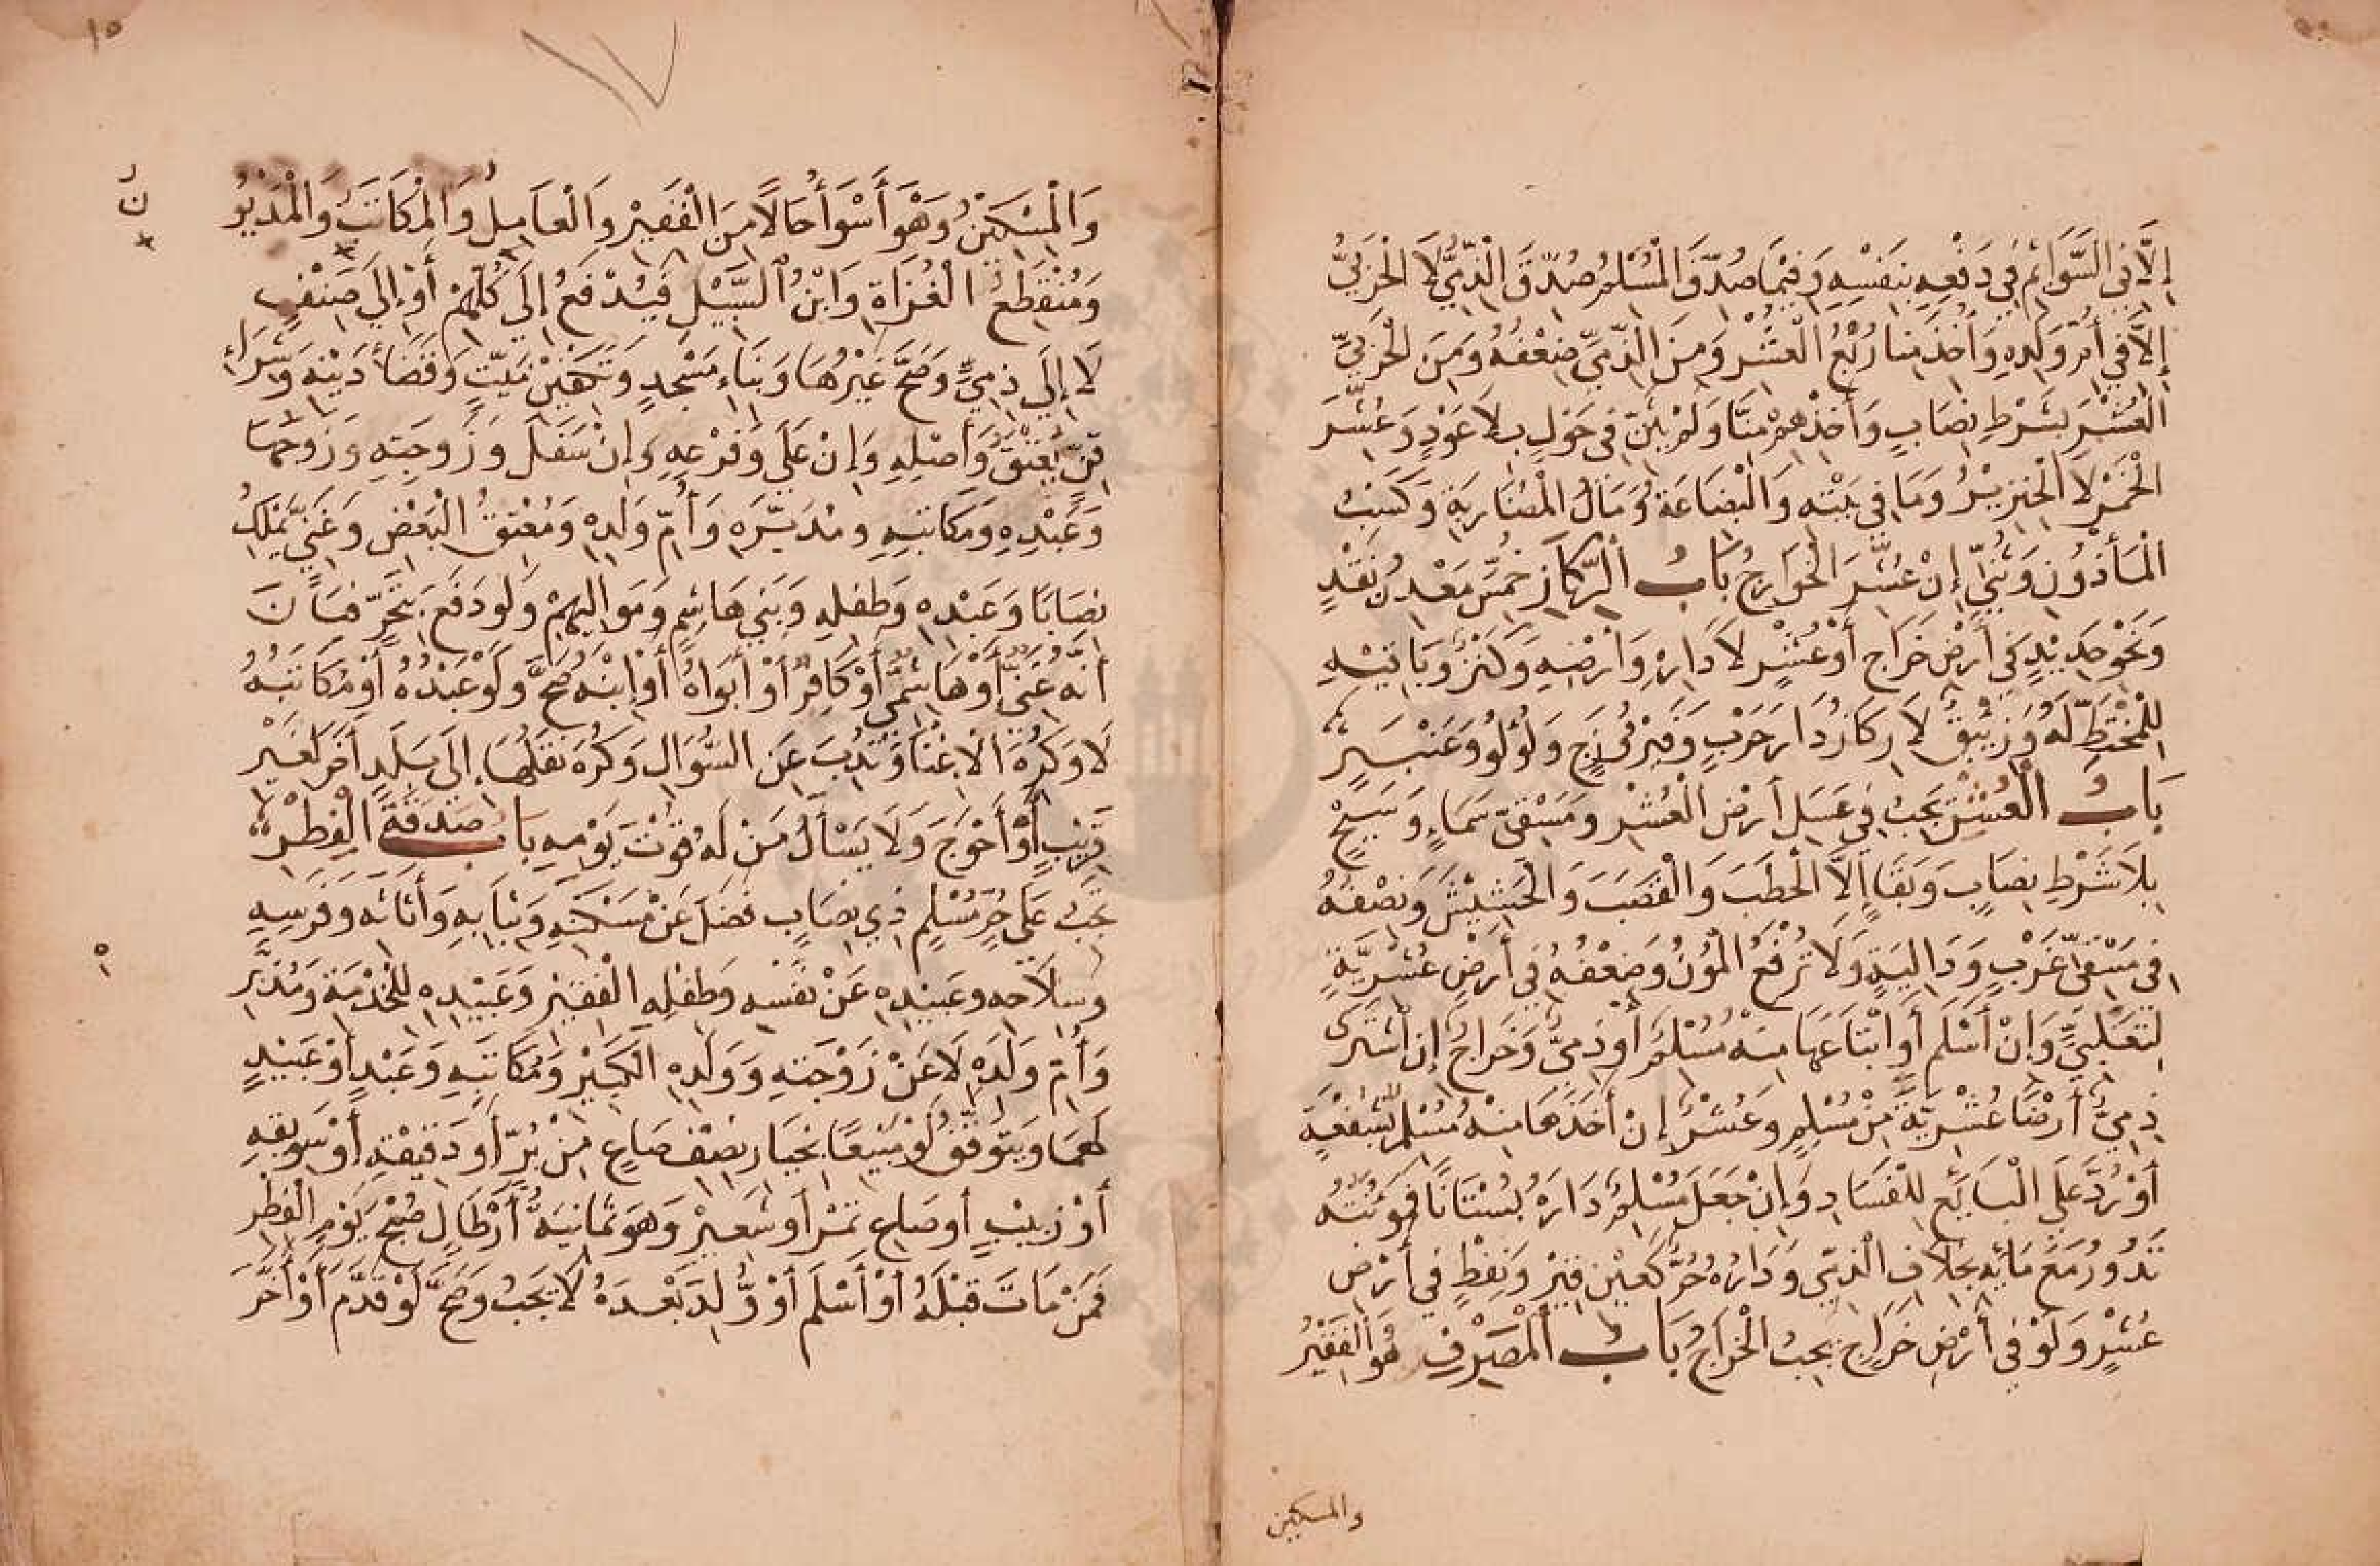 إِلَّا فِي السَّوَائِمِ فِي دَفْعِهِ بِنَفْسِهِ وَفِيمَا صُدِّقَ الْمُسْلِمُ صُدِّقَ الذِّمِّيُّ لَا الْحَرْبِيُّ
إِلَّا فِي أُمِّ وَلَدِهِ وَأَخَذَ مِنَّا رُبْعَ الْعُشْرِ وَمِنَ الذِّمِّيِّ ضِعْفُهُ وَمِنَ الْحَرْبِيِّ
الْعُشْرَ بِشَرْطِ نِصَابٍ وَأَخْذِهِمْ مِنَّا وَلَمْ يُثَنِّ فِي حَوْلٍ بِلَا عَوْدٍ وَعُشِّرَ
الْخَمْرُ لَا الْخِنْزِيْرُ وَمَا فِي بَيْتِهِ وَالْبِضَاعَةُ وَمَالُ الْمُضَارَبَةِ وَكَسْبُ
الْمَأْذُوْنِ وَثُنِّيَ إِنْ عَشَّرَ الْخَوَارِجُ بَابُ الرِّكَازِ خُمِّسَ مَعْدِنُ نَقْدٍ
وَنَحْوِ حَدِيْدٍ فِي أَرْضِ خَرَاجٍ أَوْ عُشْرٍ لَا دَارِهِ وَأَرْضِهِ وَكَنْزٌ وَبَاقِيْهِ
لِلْمُخْتَطِّ لَهُ وَزِيْبَقٌ لَا رِكَازُ دَارِ حَرْبٍ وَفَيْرُوْزَجٍ وَلُؤْلُؤٍ وَعَنْبَرٍ
بَابُ الْعُشْرِ يَجِبُ فِي عَسَلِ أَرْضِ الْعُشْرِ وَمَسْقَى سَمَاءٍ وَسَيْحٍ
بِلَا شَرْطِ نِصَابٍ وَبَقَاءٍ إِلَّا الْحَطَبَ وَالْقَصَبَ وَالْحَشِيْشَ وَنِصْفُهُ
فِي مَسْقَى غَرْبٍ وَدَالِيَةٍ وَلَا تُرْفَعُ الْمُؤَنُ وَضِعْفُهُ فِي أَرْضٍ عُشْرِيَّةٍ
لِتَغْلِبِيٍّ وَإِنْ أَسْلَمَ أَوِ ابْتَاعَهَا مِنْهُ مُسْلِمٌ أَوْ ذِمِّيٌّ وَخَرَاجٌ إِنِ اشْتَرَى
ذِمِّيٌّ أَرْضًا عُشْرِيَّةً مِنْ مُسْلِمٍ وَعُشْرٌ إِنْ أَخَذَهَا مِنْهُ مُسْلِمٌ بِشُفْعَةٍ
أَوْ رُدَّ عَلَى الْبَايِعِ لِلْفَسَادِ وَإِنْ جَعَلَ مُسْلِمٌ دَارَهُ بُسْتَانًا فَمُؤْنَتُهُ
تَدُوْرُ مَعَ مَائِهِ بِخِلَافِ الذِّمِّيِّ وَدَارُهُ حُرٌّ كَعَيْنِ قِيْرٍ وَنِفْطٍ فِي أَرْضِ
عُشْرٍ وَلَوْ فِي أَرْضِ خَرَاجٍ يَجِبُ الْخَرَاجُ بَابُ الْمَصْرِفِ هُوَ الْفَقِيْرُ
والمسكين
وَالْمِسْكِيْنُ وَهْوَ أَسْوَأُ حَالًا مِنَ الْفَقِيْرِ وَالْعَامِلُ وَالْمُكَاتَبُ وَالْمَدْيُو
نُ
وَمُنْقَطِعُ الْغُزَاةِ وَابْنُ السَّبِيْلِ فَيُدْفَعُ إِلَى كُلِّهِمْ أَوْ إِلَى صِنْفٍ
لَا إِلَى ذِمِّيٍّ وَصَحَّ غَيْرُهَا وَبِنَاءِ مَسْجِدٍ وَتَكْفِيْنِ مَيِّتٍ وَقَضَاءِ دَيْنِهِ وَشِرَاءِ
قِنٍّ يُعْتَقُ وَأَصْلِهِ وَإِنْ عَلَى وَفَرْعِهِ وَإِنْ سَفَلَ وَزَوْجَتِهِ وَزَوْجِهَا
وَعَبْدِهِ وَمُكَاتَبِهِ وَمُدَبَّرِهِ وَأُمِّ وَلَدِهِ وَمُعْتَقُ الْبَعْضِ وَغَنِيٍّ يَمْلِكُ
نِصَابًا وَعَبْدِهِ وَطِفْلِهِ وَبَنِي هَاشِمٍ وَمَوَالِيْهِمْ وَلَوْ دَفَعَ بِتَحَرٍّ فَبَانَ
أَنَّهُ غَنِيٌّ أَوْ هَاشِمِيٌّ أَوْ كَافِرٌ أَوْ أَبُوَاهُ أَوِ ابْنُهُ صَحَّ وَلَوْ عَبْدُهُ أَوْ مُكَاتَبُهُ
لَا وَكُرِهَ الْإِغْنَا وَنُدِبَ عَنِ السُّؤَالِ وَكُرِهَ نَقْلُهَا إِلَى بَلَدٍ آخَرَ لِغَيْرِ
قَرِيْبٍ أَوْ أَحْوَجَ وَلَا يَسْأَلُ مَنْ لَهُ قُوْتُ يَوْمِهِ بَابُ صَدَقَةِ الْفِطْرِ
تَجِبُ عَلَى حُرٍّ مُسْلِمٍ ذِي نِصَابٍ فَضَلَ عَنْ مَسْكَنِهِ وَثِيَابِهِ وَأَثَاثِهِ وَفَرَسِهِ
وَسِلَاحِهِ وَعَبِيْدِهِ عَنْ نَفْسِهِ وَطِفْلِهِ الْفَقِيْرِ وَعَبِيْدِهِ لِلْخِدْمَةِ وَمُدَبَّرِ
هِ
وَأُمِّ وَلَدِهِ لَا عَنْ زَوْجَتِهِ وَوَلَدِهِ الْكَبِيْرِ وَمُكَاتَبِهِ وَعَبْدٍ أَوْ عَبِيْدٍ
لَهُمَا وَيَتَوَقَّفُ لَوْ مَبِيْعًا بِخِيَارٍ نِصْفُ صَاعٍ مِنْ بُرٍّ أَوْ دَقِيْقِهِ أَوْ سَوِيقِهِ
أَوْ زَبِيْبٍ أَوْ صَاعُ تَمْرٍ أَوْ شَعِيْرٍ وَهُوَ ثَمَانِيَةُ أَرْطَالٍ صُبْحَ يَوْمِ الْفِطْرِ
فَمَنْ مَاتَ قَبْلَهُ أَوْ أَسْلَمَ أَوْ وُلِدَ بَعْدَهُ لَا يَجِبُ وَصَحَّ لَوْ قَدَّمَ أَوْ أَخَّرَ